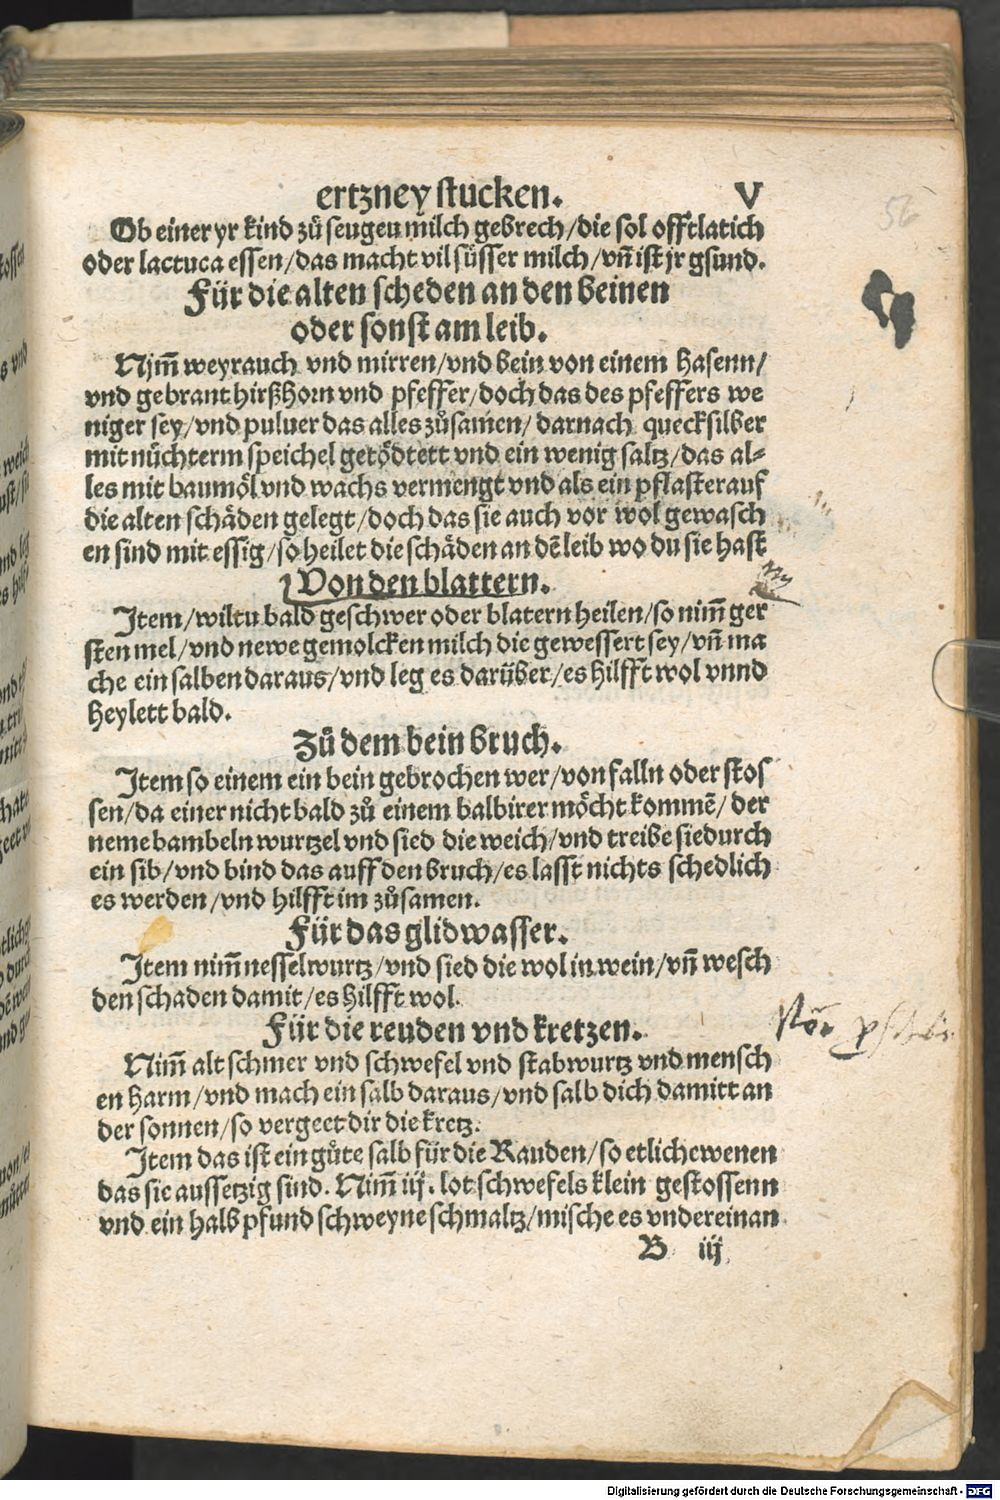 ertzney stucken. V
56
Ob einer yr kind zů seugen milch gebrech/die sol offt latich
oder lactuca essen/das macht vil süsser milch/vñ ist jr gsund.
Für die alten scheden an den beinen
oder sonst am leib.
Nim̃ weyrauch vnd mirren/vnd bein von einem hasenn/
vnd gebrant hirßhorn vnd pfeffer/doch das des pfeffers we
niger sey/vnd puluer das alles zůsamen/darnach quecksilber
mit nüchterm speichel getödtett vnd ein wenig saltz/das al⸗
les mit baumöl vnd wachs vermengt vnd als ein pflaster auf
die alten schäden gelegt/doch das sie auch vor wol gewasch
en sind mit essig/so heilet die schäden an dē leib wo du sie hast
Von den blattern.
Item/wiltu bald geschwer oder blatern heilen/so nim̃ ger
sten mel/vnd newe gemolcken milch die gewessert sey/vñ ma
che ein salben daraus/vnd leg es darüber/es hilfft wol vnnd
heylett bald.
Zů dem bein bruch.
Item so einem ein bein gebrochen wer/von falln oder stos
sen/da einer nicht bald zů einem balbirer möcht kommē/der
neme bambeln wurtzel vnd sied die weich/vnd treibe sie durch
ein sib/vnd bind das auff den bruch/es lasst nichts schedlich
es werden/vnd hilfft im zůsamen.
Für das glidwasser.
Item nim̃ nesselwurtz/vnd sied die wol in wein/vñ wesch
den schaden damit/es hilfft wol.
Für die reuden vnd kretzen.
Nim̃ alt schmer vnd schwefel vnd stabwurtz vnd mensch
en harm/vnd mach ein salb daraus/vnd salb dich damitt an
der sonnen/so vergeet dir die kretz.
Item das ist ein gůte salb für die Rauden/so etliche wenen
das sie aussetzig sind. Nim̃ iij. lot schwefels klein gestossenn
vnd ein halb pfund schweyne schmaltz/mische es vndereinan
B iij
Digitalisierung gefördert durch die Deutsche Forschungsgemeinschaft - DFG